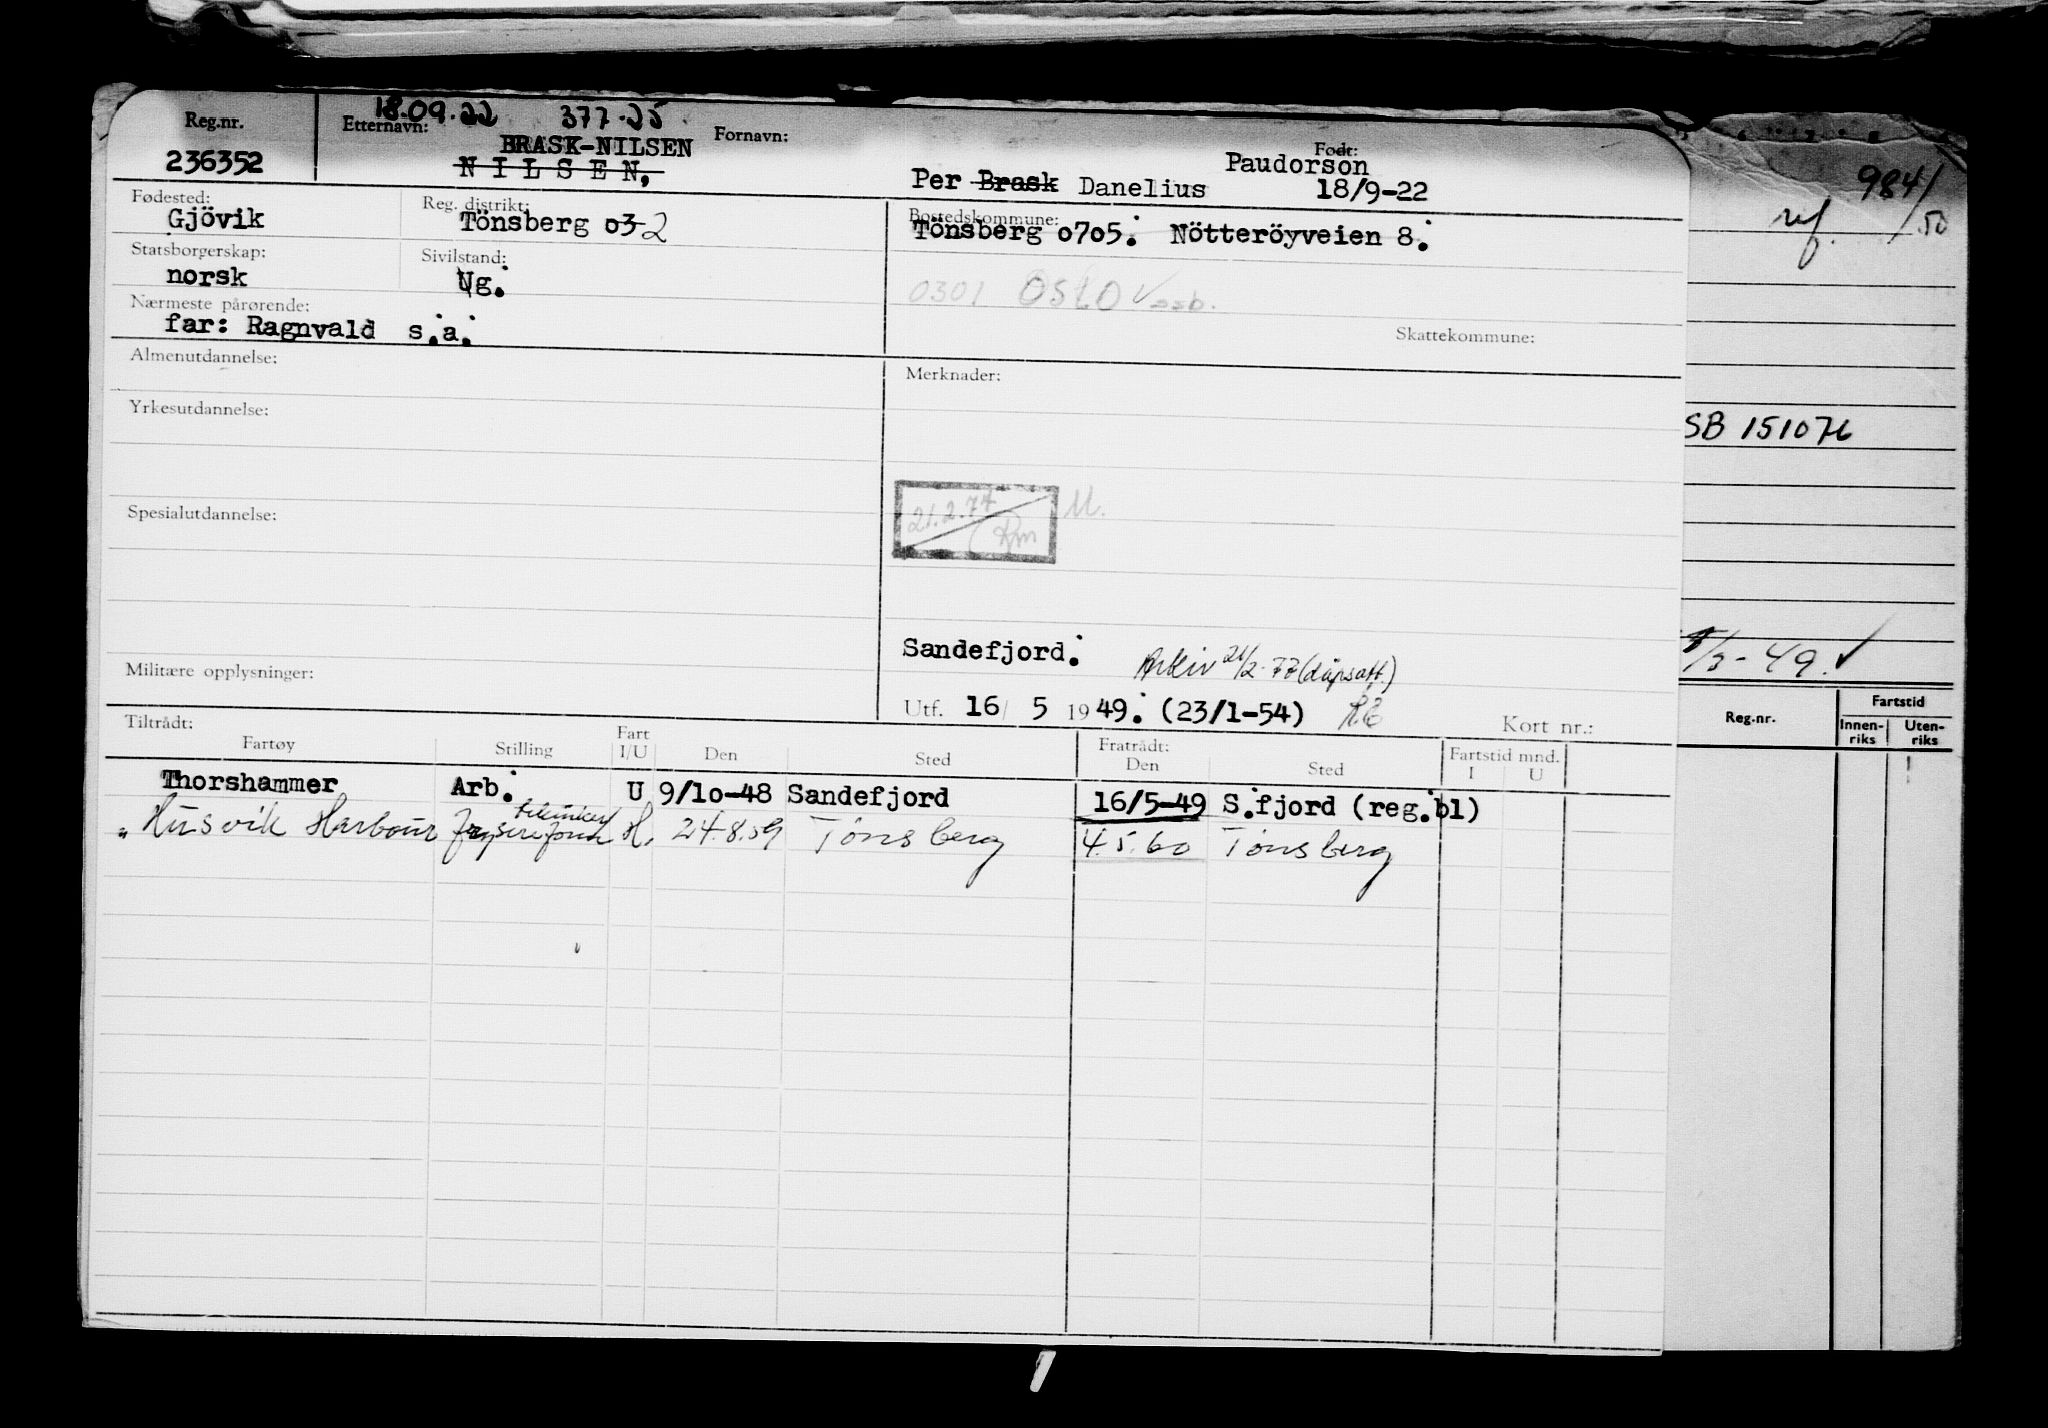 18.09.22 377.25
Reg.nr. Etternavn: Fornavn: Født:
236352 BRASK-NILSEN Paudorson
N I L S E N, Per Brask Danelius 18/9-22
Fødested: Reg. distrikt: Bostedskommune:
Gjövik Tönsberg 03-2 Tönsberg 0705. Nötteröyveien 8.
Statsborgerskap: Sivilstand:
norsk Ug. 0301 OSLO
Nærmeste pårørende:
far: Ragnvald s.a. Skattekommune:
Almenutdannelse: Merknader:
Yrkesutdannelse:
Spesialutdannelse: 21.2.77 M.
Rm
Sandefjord. Arkiv 21/2-77 (dåpsatt.)
Militære opplysninger:
Utf. 16/ 5 1949. (23/1-54) Kort nr.:
Tiltrådt: Fart Fratrådt: Fartstid mnd.
Fartøy Stilling I/U Den Sted Den Sted I U
Thorshammer Arb. U 9/10-48 Sandefjord 16/5-49 S.fjord (reg.bl)
" Husvik Harbour H. 24.8.59 Tönsberg 4.5.60 Tönsberg
984/
ref. /50
SB 151076
/3-49.
Reg.nr. Fartstid
Innen-riks Uten-riks